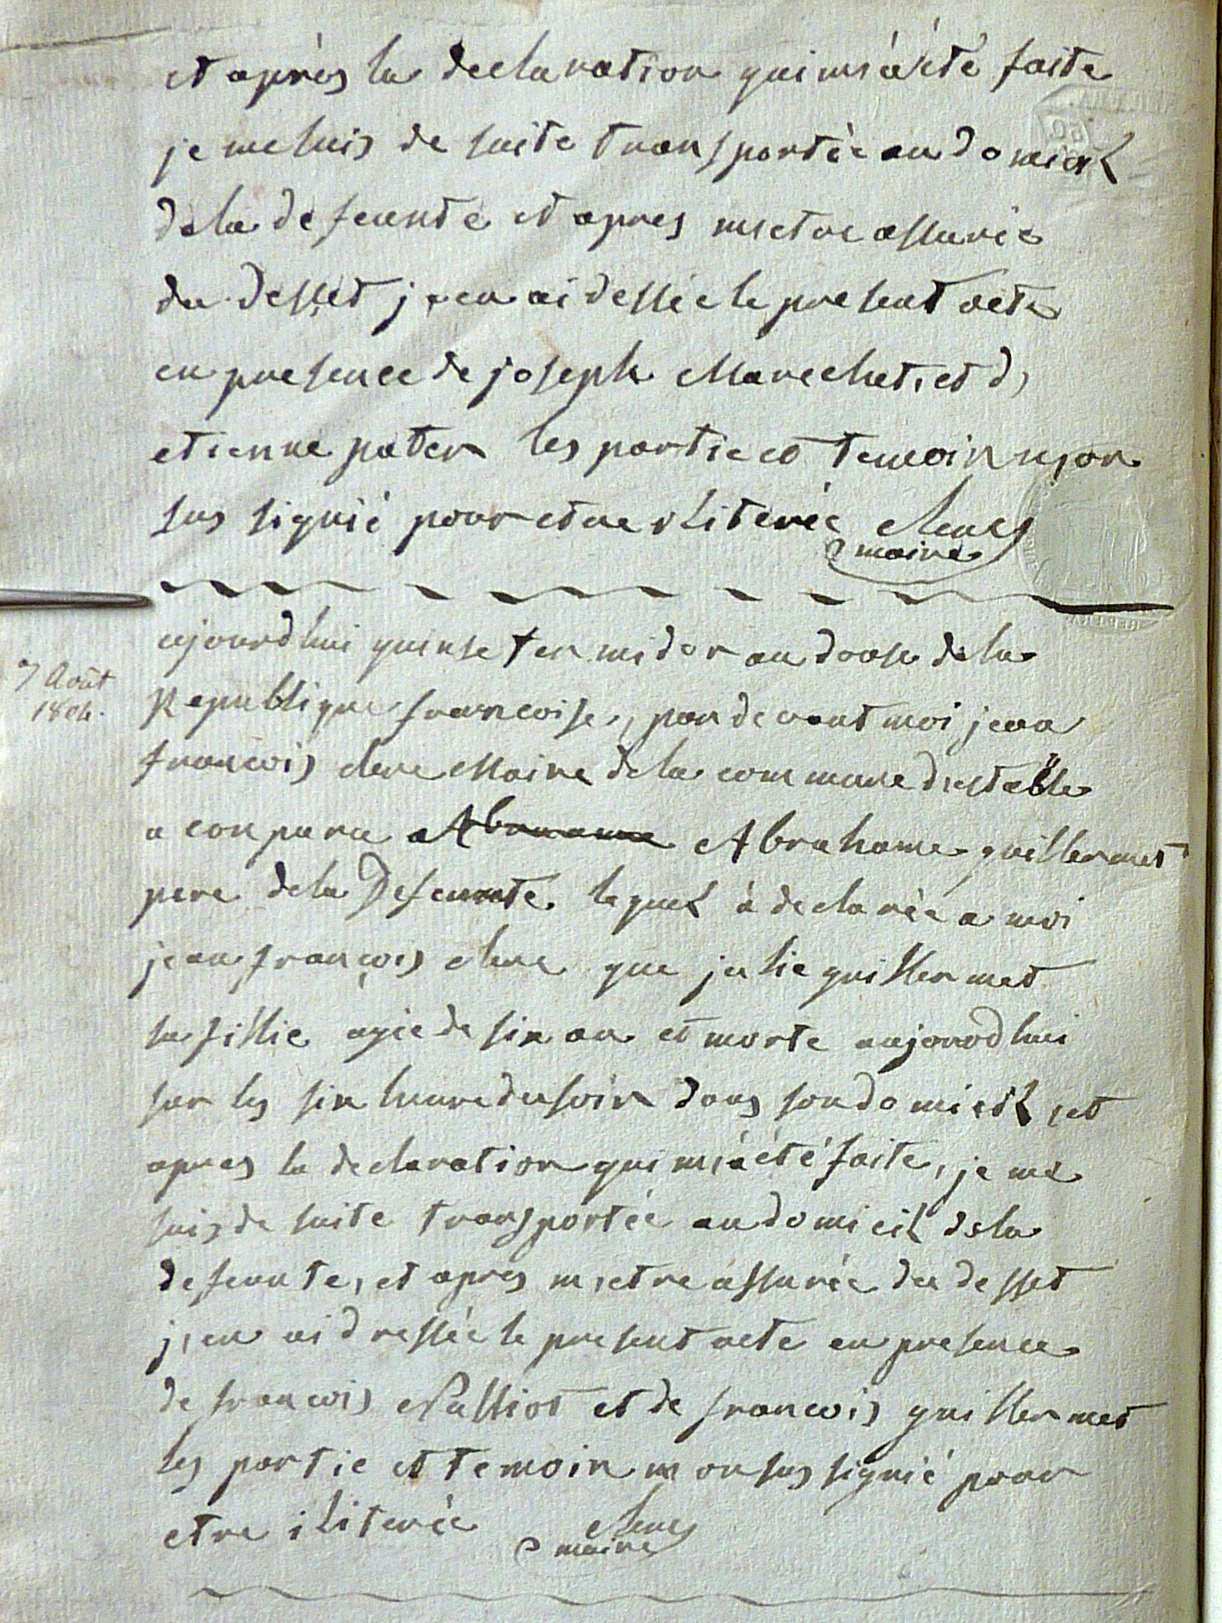 et après la declaration qui m,a été faite
je me suis de suite transportèe au domicil
de la defeunte et apres m,etre assurée
du desset j,en ai dessée le present acte
en presence de joseph Marechet, et d,
etienne pater les partie et temoin n,on
sus signié pour etre iliterée Clerc
maire
ajourdhui quinse termidor an douse de la
7 Août
1804.
Republique francoise, par devant moi jean
francois clerc Maire de la commune d,estable
a conparu Abrahame guillermet
pere de la Defeunte lequel à declarèe a moi
jean françois clerc que julie guillermet
sa fillie agie de six an et morte aujourdhui
sur les six heure du soir dans son domicil, et
apres la declaration qui m,a été faite, je me
suis de suite transportée au domicil de la
defeunte, et apres m,etre assurée du desset
j,en ai dressée le present acte en presence
de francois Palliot et de francois guillermet
les partie et temoin n on sus signié pour
etre iliterée Clerc
maire